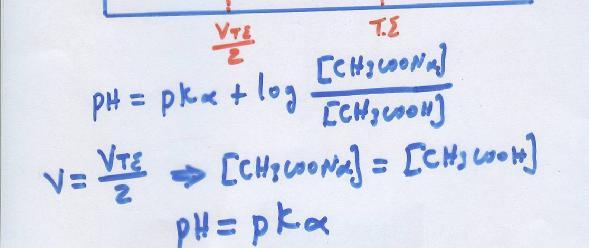 V_ΤΣ/2 Τ.Σ
pH = pKα + log [CH₃COONα]/[CH₃COOH]
V = V_ΤΣ/2 ⇒ [CH₃COONα] = [CH₃COOH]
pH = pKα